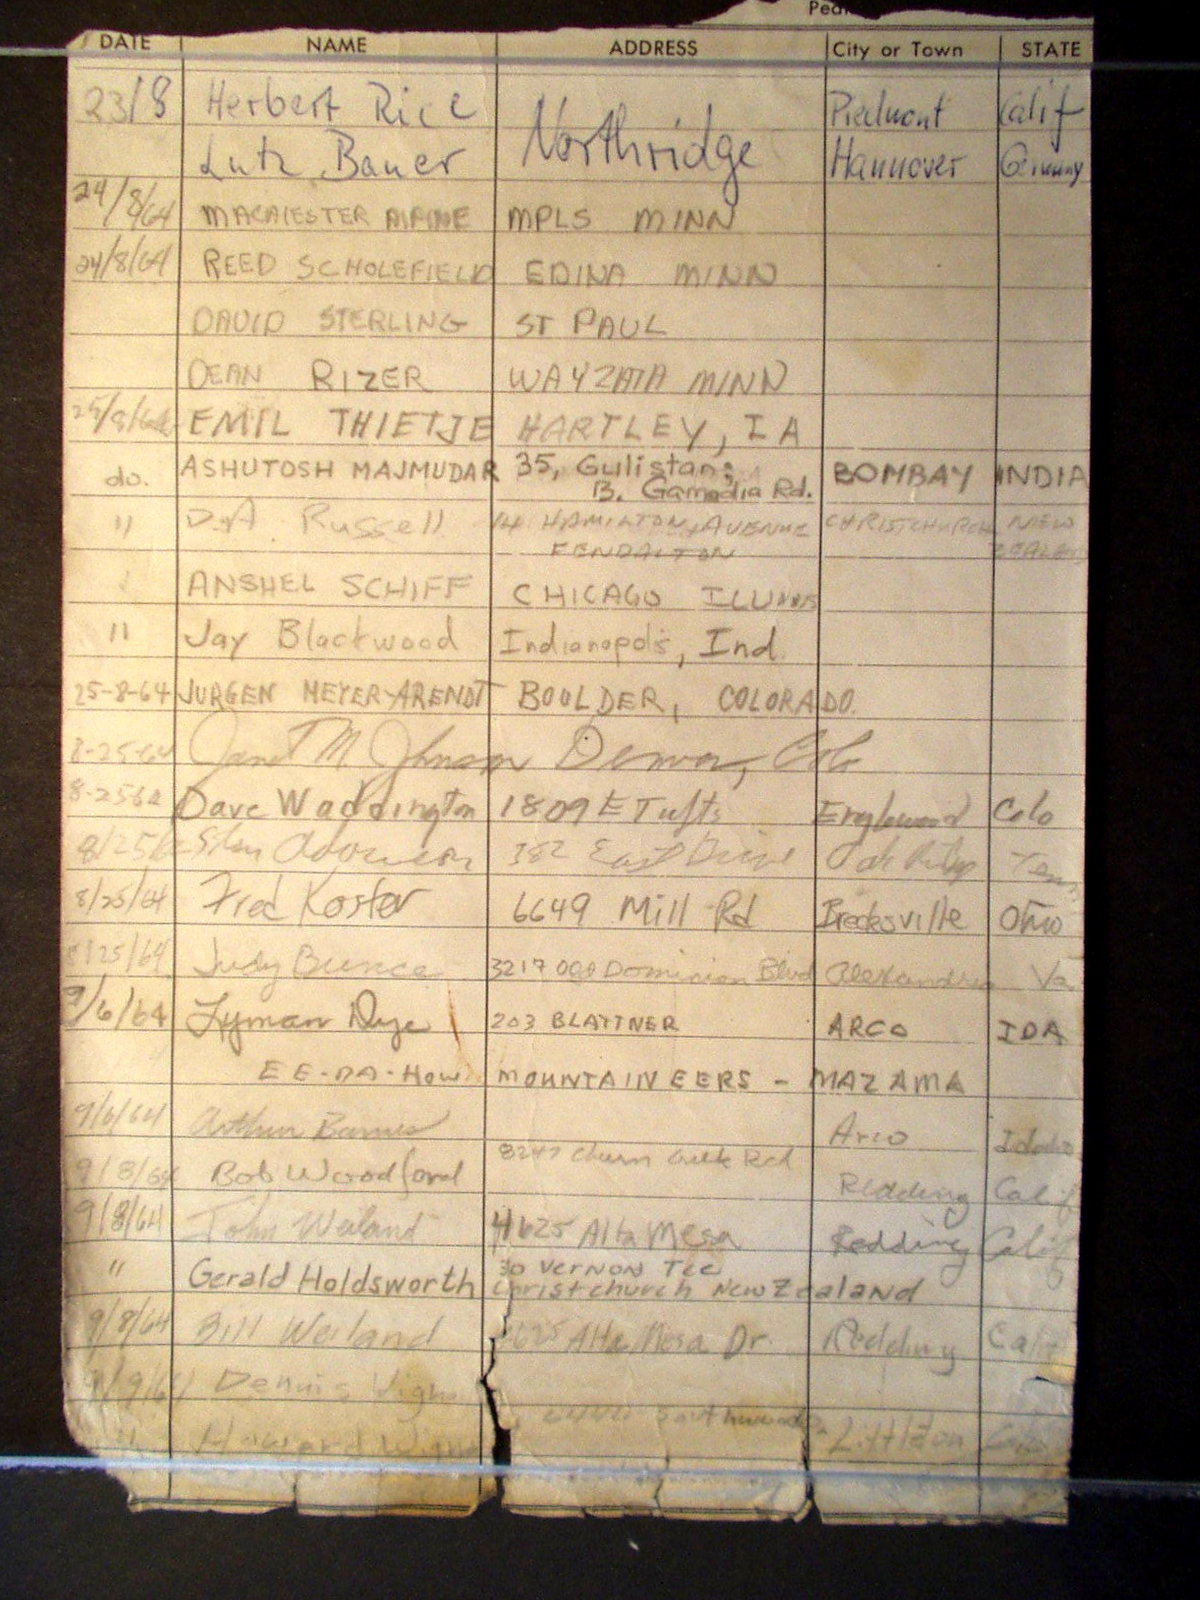 DATE NAME ADDRESS City or Town STATE
23/8 Herbert Rice Northridge Piedmont Calif
Lutz Bauer Hannover Germany
24/8/64 MACALESTER ALPINE MPLS MINN
24/8/64 REED SCHOLEFIELD EDINA MINN
DAVID STERLING ST PAUL
DEAN RIZER WAYZATA MINN
25/8/64 EMIL THIETJE HARTLEY, IA
do. ASHUTOSH MAJMUDAR 35, Gulistan; BOMBAY INDIA
B. Gamadia Rd.
" D.A Russell 14 HAMILTON AVENUE CHRISTCHURCH NEW
FENDALTON ZEALAND
ANSHEL SCHIFF CHICAGO
" Jay Blackwood Indianapolis, Ind
25-8-64 JURGEN MEYER-ARENDT BOULDER, COLORADO.
8-25-64 Janet M Johnson Denver, Colo
8-25 64 Dave Waddington 1809 E Tufts Englewood Colo
8/25/64 382 East Drive Oak Ridge Tenn
8/25/64 Fred Koster 6649 Mill Rd Brecksville Ohio
8/25/64 Judy Bunce 3217 Old Dominion Blvd Alexandria Va
9/6/64 Lyman Dye 203 BLATTNER ARCO IDA
EE-DA-HOW MOUNTAINEERS - MAZAMA
9/6/64 Arthur Barnes Arco Idaho
9/8/64 Bob Woodford 8247 Churn Creek Rd Redding Calif
9/8/64 John Weiland 4625 Alta Mesa Redding Calif
" Gerald Holdsworth 30 VERNON TCE
Christchurch New Zealand
9/8/64 Bill Weiland 4625 Alta Mesa Dr Redding Calif
9/9/64 Dennis
Howard Littleton